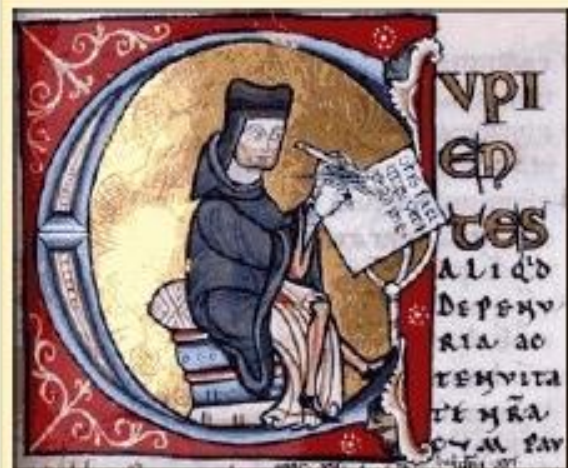 CVPI
EN
TES
ALIQ'D
DEPENV
RIA AC
TENVITA
TE NR̃A
CVM PAV